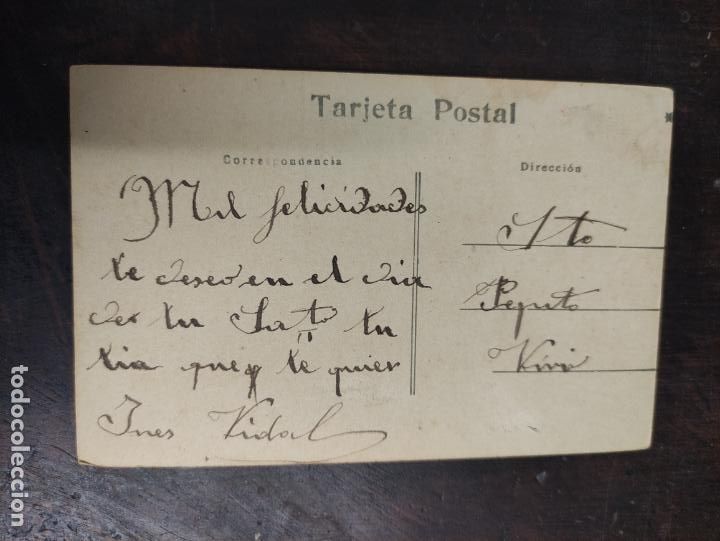 Tarjeta Postal
Correspondencia
Mil felicidades
te deseo en el dia
des tu Sato tu
tia que te quier
Ines Vidal
Dirección
Sto
Pepito
Vivi
todocoleccion
todocoleccion